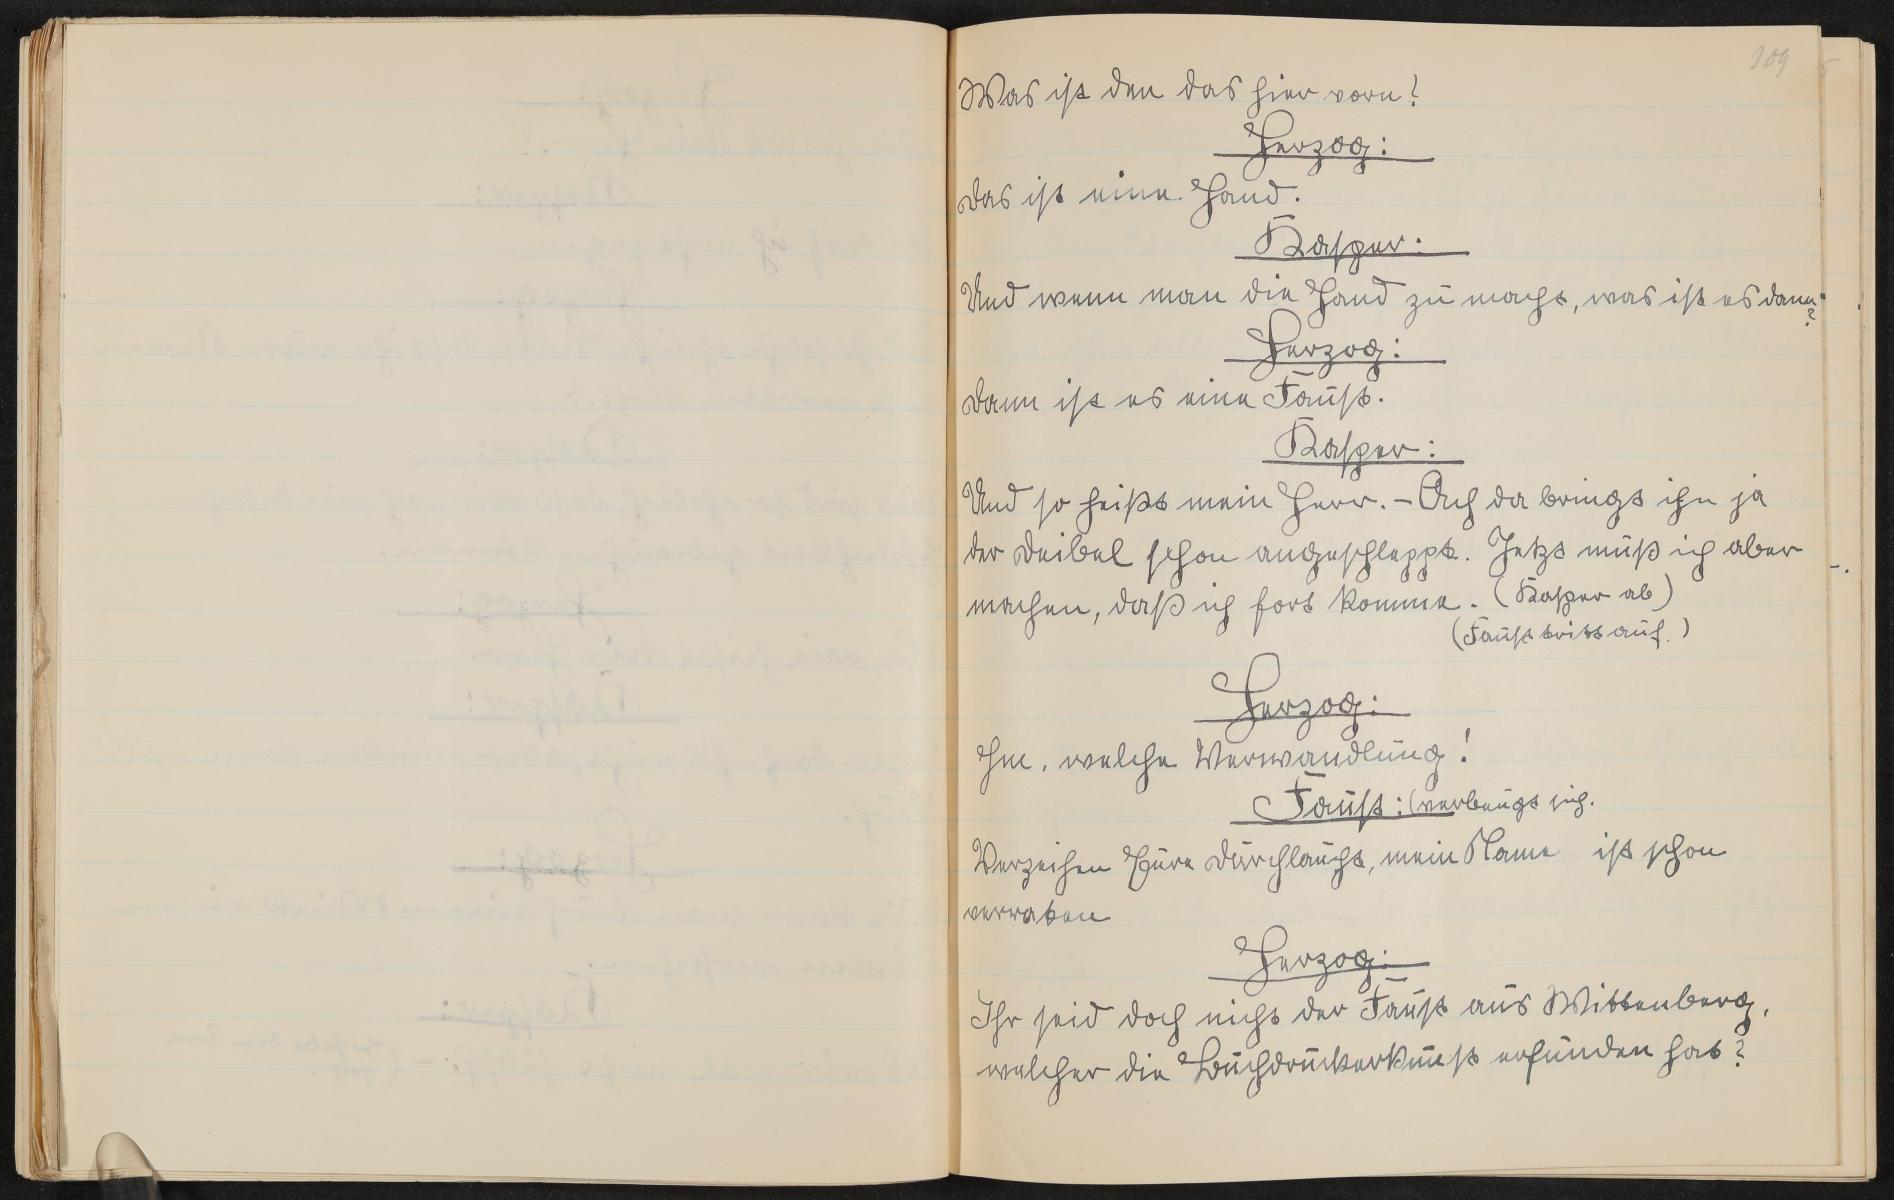 109
Was ist den das hier vorn?
Herzog:
Das ist eine Hand.
Kasper:
Und wenn man die Hand zu macht, was ist es dann?
Herzog:
Dann ist es eine Faust.
Kasper:
Und so heißt mein Herr. – Ach da bringt ihn ja
der Deibel schon angeschleppt. Jetzt muß ich aber
machen, daß ich fort komme. (Kasper ab)
(Faust tritt auf.)
Herzog:
Hm, welche Verwandlung!
Faust: (verbeugt sich.
Verzeihen Eure Durchlaucht, mein Name ist schon
verraten
Herzog:
Ihr seid doch nicht der Faust aus Wittenberg,
welcher die Buchdruckerkunst erfunden hat?